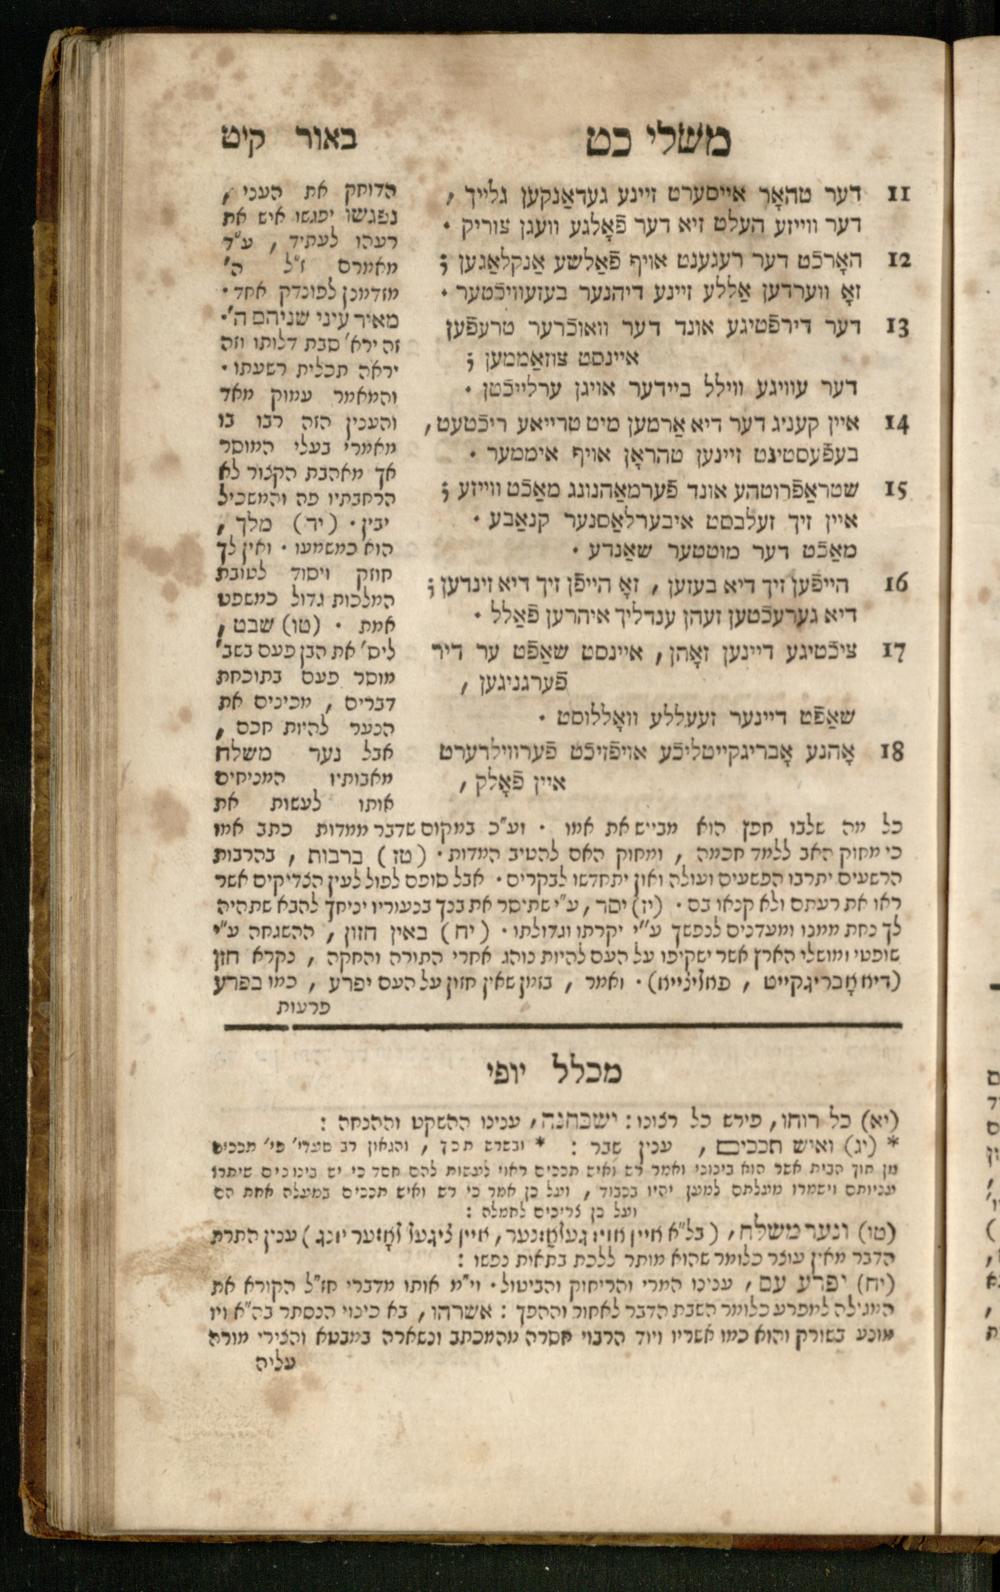 משלי כט
באור קיט
11 דער טהאָר אייסערט זיינע געדאַנקען גלייך ,
דער ווייזע העלט זיא דער פֿאָלגע וועגן צוריק .
12 האָרכֿט דער רעגענט אויף פֿאַלשע אַנקלאַגען ;
זאָ ווערדען אַללע זיינע דיהנער בעזעוויכֿטער .
13 דער דירפֿטיגע אונד דער וואוכֿרער טרעפֿען
איינסט צוזאַממען ;
דער עוויגע ווילל ביידער אויגן ערלייכֿטן .
14 איין קעניג דער דיא אַרמען מיט טרייאע ריכֿטעט ,
בעפֿעסטיגט זיינען טהראָן אויף איממער .
15 שטראַפֿרוטהע אונד פֿערמאַהנונג מאַכֿט ווייזע ;
איין זיך זעלבסט איבערלאַסנער קנאַבע .
מאַכֿט דער מוטטער שאַנדע .
16 הייפֿען זיך דיא בעזען , זאָ הייפֿן זיך דיא זינדען ;
דיא גערעכֿטען זעהן ענדליך איהרען פֿאַלל .
17 ציכֿטיגע דיינען זאָהן , איינסט שאַפֿט ער דיר
פֿערגניגען ,
שאַפֿט דיינער זעעללע וואָללוסט .
18 אָהנע אָבריגקייטליכֿע אויפֿזיכֿט פֿערווילדערט
איין פֿאָלק ,
הדוחק את העני ,
נפגשו יפגשו איש את
רעהו לעתיד , ע"ד
מאמרם ז"ל ה'
מזדמנן לפונדק אחד .
מאיר עיני שניהם ה' .
זה ירא' סבת דלותו וזה
יראה תכלית רשעתו .
והמאמר עמוק מאד
והענין הזה רבו בו
מאמרי בעלי המוסר
אך מאהבת הקצור לא
הרחבתיו פה והמשכיל
יבין . (יד) מלך ,
הוא כמשמעו . ואין לך
חוזק ויסוד לטובת
המלכות גדול כמשפט
אמת . (טו) שבט ,
ליס' את הבן פעם בשב'
מוסר פעם בתוכחת
דברים , מכינים את
הנער להיות חכם ,
אבל נער משלח
מאבותיו המניחים
אותו לעשות את
כל מה שלבו חפץ הוא מבייש את אמו . וע"כ במקום שדבר ממדות כתב אמו
כי מחוק האב ללמד חכמה , ומחוק האם להטיב המדות . (טז) ברבות , בהרבות
הרשעים יתרבו הפשעים ועולה ואון יתחדשו לבקרים . אבל סופם לפול לעין הצדיקים אשר
ראו את רעתם ולא קנאו בם . (יז) יסר , ע"י שתיסר את בנך בנעוריו יניחך להבא שתהיה
לך נחת ממנו ומעדנים לנפשך ע"י יקרתו וגדולתו . (יח) באין חזון , ההשגחה ע"י
שופטי ומושלי הארץ אשר ישקיפו על העם להיות נוהג אחרי התורה והחקה , נקרא חזון
(דיא אָבריגקייט , פאליצייא) . ואמר , בזמן שאין חזון על העם יפרע , כמו בפרע
פרעות
מכלל יופי
(יא) כל רוחו , פירש כל רצונו : ישבחנה , ענינו ההשקט וההנחה :
* (יג) ואיש תככים , ענין שבר : * ובשרש תכך , והגאון רב סעדי' פי' תככים
מן תוך הבית אשר הוא בינוני ואמר רש ואיש תככים ראוי לעשות להם חסד כי יש בינונים שיתרו
עניותם וישמרו מעלתם למען יהיו בכבוד , ועל כן אמר כי רש ואיש תככים במעלה אחת הם
ועל כן צריכים לחמלה :
(טו) ונער משלח , (בל"א איין אויז געלאַזנער , איין ליגעז לאָזער יונג) ענין התרת
הדבר מאין עוצר כלומר שהוא מותר ללכת בתאות נפשו :
(יח) יפרע עם , ענינו המרי והריחוק והביטול . וי"מ אותו מדברי חז"ל הקורא את
המגילה למפרע כלומר השבת הדבר לאחור וההפך : אשרהו , בא כינוי הנסתר בה"א ויו
מונע בשורק והוא כמו אשריו ויוד הרבוי חסרה מהמכתב ונשארה במבטא והצירי מורה
עליה